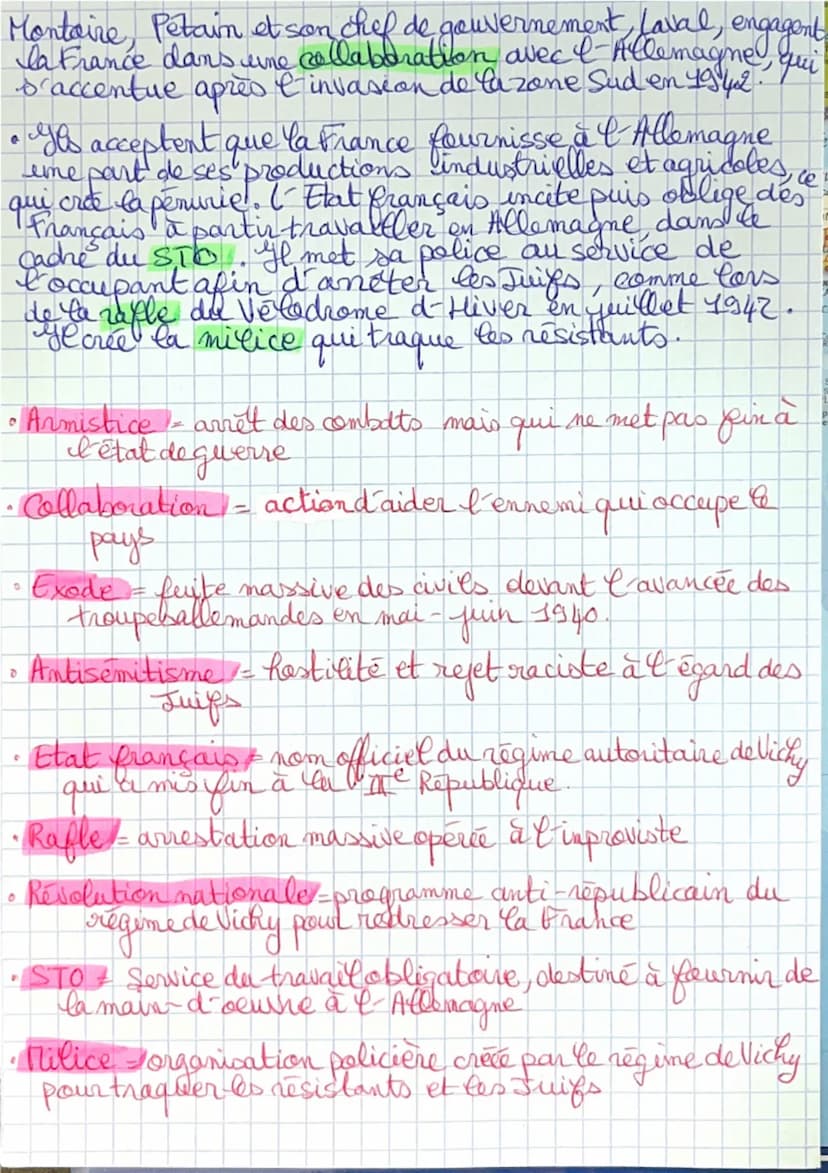 Montoire, Pétain et son chef de gouvernement, Laval, engagent
la France dans une collaboration avec l'Allemagne, qui
s'accentue après l'invasion de la zone Sud en 1942.
• Ils acceptent que la France fournisse à l'Allemagne
une part de ses productions industrielles et agricoles, ce
qui crée la pénurie. L'Etat français incite puis oblige des
Français à partir travailler en Allemagne, dans le
cadre du STO. Il met sa police au service de
l'occupant afin d'arrêter les Juifs, comme lors
de la rafle du Vélodrome d'Hiver en juillet 1942.
Il crée la milice qui traque les résistants.
• Armistice = arrêt des combats mais qui ne met pas fin à
l'état de guerre
• Collaboration = action d'aider l'ennemi qui occupe le
pays
• Exode = fuite massive des civils devant l'avancée des
troupes allemandes en mai-juin 1940.
• Antisémitisme = hostilité et rejet raciste à l'égard des
Juifs
• Etat français = nom officiel du régime autoritaire de Vichy
qui a mis fin à la IIIe République.
• Rafle = arrestation massive opérée à l'improviste
• Révolution nationale = programme anti-républicain du
régime de Vichy pour redresser la France
• STO = Service du travail obligatoire, destiné à fournir de
la main-d'oeuvre à l'Allemagne
• Milice = organisation policière créée par le régime de Vichy
pour traquer les résistants et les Juifs